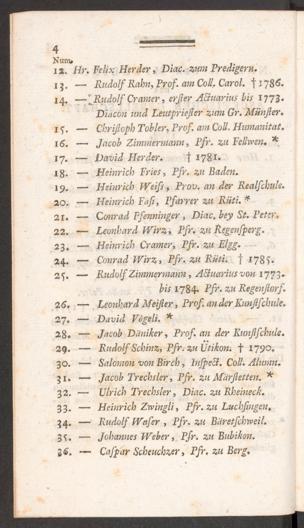 4
Num.
12. Hr. Felix Herder, Diac. zum Predigern.
13. — Rudolf Rahn, Prof. am Coll. Carol. † 1786.
14. — Rudolf Cramer, erſter Actuarius bis 1773.
Diacon und Leutprieſter zum Gr. Münſter.
15. — Chriſtoph Tobler, Prof. am Coll. Humanitat.
16. — Jacob Zimmermann, Pfr. zu Feltwen. *
17. — David Herder. † 1781.
18. — Heinrich Fries, Pfr. zu Baden.
19. — Heinrich Weiſs, Prov. an der Realſchule.
20. — Heinrich Faſi, Pfarrer zu Rüti. *
21. — Conrad Pfenninger, Diac. bey St. Peter.
22. — Leonhard Wirz, Pfr. zu Regenſperg.
23. — Heinrich Cramer, Pfr. zu Elgg.
24. — Conrad Wirz, Pfr. zu Rüti. † 1785.
25. — Rudolf Zimmermann, Actuarius von 1773.
bis 1784. Pfr. zu Regenſtorf.
26. — Leonhard Meiſter, Prof. an der Kunſtſchule.
27. — David Vögeli. *
28. — Jacob Däniker, Prof. an der Kunſtſchule.
29. — Rudolf Schinz, Pfr. zu Ütikon. † 1790.
30. — Salomon von Birch, Inſpect. Coll. Alumn.
31. — Jacob Trechsler, Pfr. zu Märſtetten. *
32. — Ulrich Trechsler, Diac. zu Rheineck.
33. — Heinrich Zwingli, Pfr. zu Luchſingen.
34. — Rudolf Waſer, Pfr. zu Bäretſchweil.
35. — Johannes Weber, Pfr. zu Bubikon.
36. — Caſpar Scheuchzer, Pfr. zu Berg.